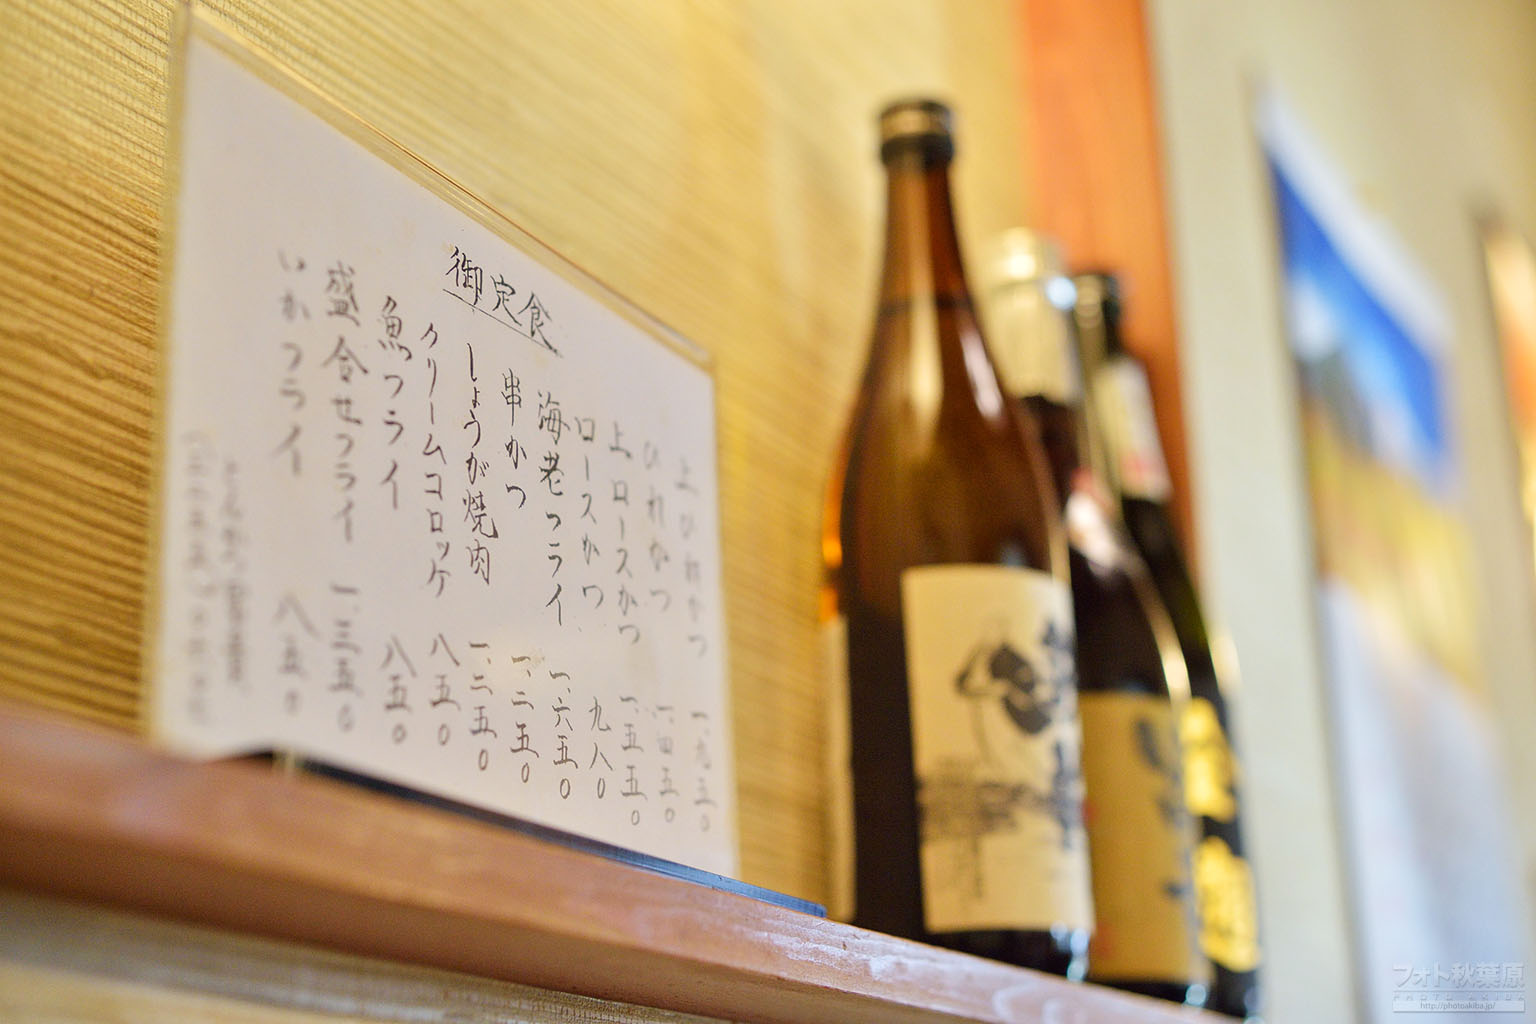 御定食
上ひれかつ 一、九五〇
ひれかつ 一、四五〇
上ロースかつ 一、五五〇
ロースかつ 九八〇
海老フライ 一、六五〇
串かつ 一、二五〇
しょうが焼肉 一、二五〇
クリームコロッケ 八五〇
魚フライ 八五〇
盛合せフライ 一、三五〇
いかフライ 八五〇
フォト秋葉原
http://photoakiba.jp/